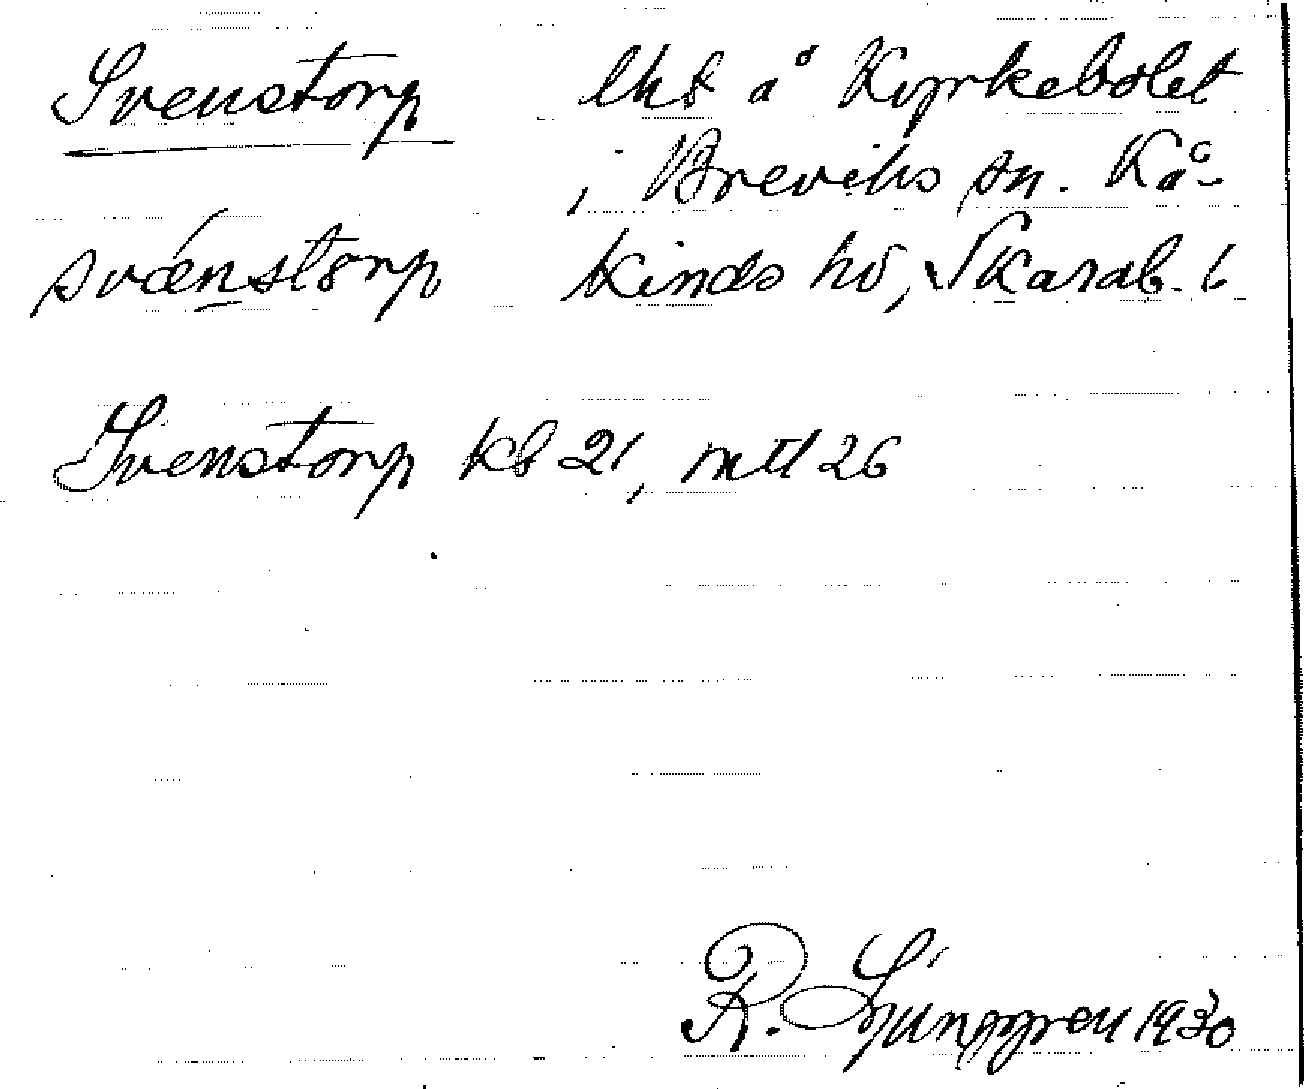 Svenstorp lht å Kyrkebolet
i Breviks sn. Kå-
svænstorp kinds hd, Skarab. l
Svenstorp kb 21, mtl 26
R. Ljunggren 1930